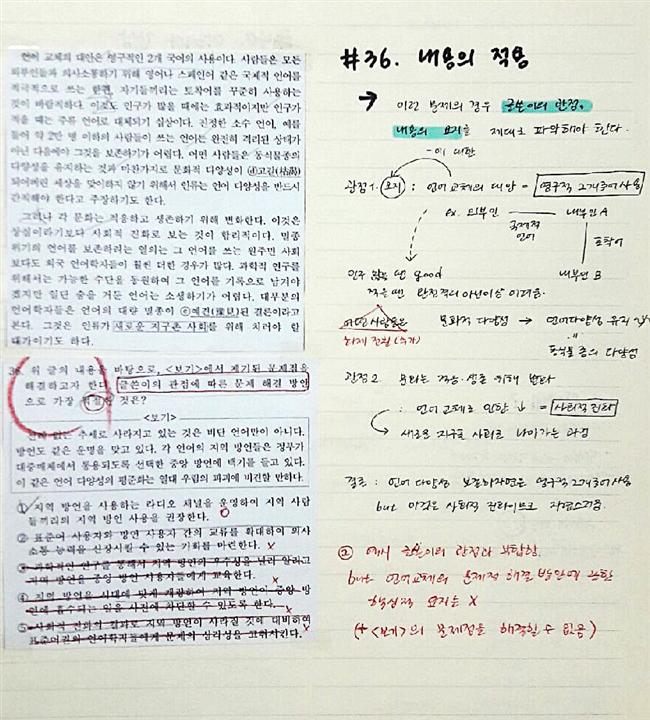 언어 교체의 대안은 영구적인 2개 국어의 사용이다. 사람들은 모든
외부인들과 의사소통하기 위해 영어나 스페인어 같은 국제적 언어를
적극적으로 쓰는 한편, 자기들끼리는 토착어를 꾸준히 사용하는
것이 바람직하다. 이것도 인구가 많을 때에는 효과적이지만 인구가
적을 때는 주류 언어로 대체되기 십상이다. 진정한 소수 언어, 예를
들어 약 2만 명 이하의 사람들이 쓰는 언어는 완전히 격리된 상태가
아닌 다음에야 그것을 보존하기가 어렵다. 어떤 사람들은 동식물종의
다양성을 유지하는 것과 마찬가지로 문화적 다양성이 ⓓ고갈(枯渴)
되어버린 세상을 맞이하지 않기 위해서 인류는 언어 다양성을 반드시
간직해야 한다고 주장하기도 한다.
그러나 각 문화는 적응하고 생존하기 위해 변화한다. 이것은
상실이라기보다 사회적 진화로 보는 것이 합리적이다. 멸종
위기의 언어를 보존하려는 열의는 그 언어를 쓰는 원주민 사회
보다도 외국 언어학자들이 훨씬 더한 경우가 많다. 과학적 연구를
위해서는 가능한 수단을 동원하여 그 언어를 기록으로 남기야
겠지만 일단 숨을 거둔 언어는 소생하기가 어렵다. 대부분의
언어학자들은 언어의 대량 멸종이 ⓔ예견(豫見)된 결론이라고
본다. 그것은 인류가 새로운 지구촌 사회를 위해 치러야 할
대가이기도 하다.
36. 위 글의 내용을 바탕으로, <보기>에서 제기된 문제점을
해결하고자 한다. 글쓴이의 관점에 따른 문제 해결 방안
으로 가장 적절한 것은?
<보기>
전례 없는 추세로 사라지고 있는 것은 비단 언어만이 아니다.
방언도 같은 운명을 맞고 있다. 각 언어의 지역 방언들은 정부가
대중매체에서 통용되도록 선택한 중앙 방언에 백기를 들고 있다.
이 같은 언어 다양성의 평준화는 열대 우림의 파괴에 비견할 만하다.
① 지역 방언을 사용하는 라디오 채널을 운영하여 지역 사람
들끼리의 지역 방언 사용을 권장한다.
② 표준어 사용자와 방언 사용자 간의 교류를 확대하여 의사
소통 능력을 신장시킬 수 있는 기회를 마련한다. x
③ 과학적인 연구를 통해서 지역 방언의 우수성을 널리 알리고
지역 방언을 중앙 방언 사용자들에게 교육한다. x
④ 지역 방언을 시대에 맞게 개량하여 지역 방언이 중앙 방
언에 흡수되는 일을 사전에 차단할 수 있도록 한다. x
⑤ 사회적 진화의 결과로 지역 방언이 사라질 것에 대비하여
표준어권의 언어학자들에게 문제의 심각성을 고취시킨다. x
#36. 내용의 적용
→ 이런 문제의 경우 글쓴이의 관점,
내용의 요지를 제대로 파악해야 된다.
-에 대한
관점1. 요지 : 언어교체의 대안 = 영구적 2개국어사용
ex. 외부인 내부인 A
국제적
언어 토착어
내부인 B
인구 많을 땐 good
적을 땐 완전격리아닌이상 어려움.
어떤 사람들은 문화적 다양성 → 언어다양성 유지
동식물 종의 다양성
관점2. 문화는 적응·생존 위해 변화
: 언어교체로 인한 ↓ = 사회적 진화
→ 새로운 지구촌 사회로 나아가는 과정
결론 : 언어 다양성 보장하자면은 영구적 2개국어사용
but 이것은 사회적 진화이므로 자연스러움.
② 에서 글쓴이의 관점과 부합함.
but 언어교체의 문제적 해결방안에 관한
핵심적 요지는 X
(+ <보기>의 문제점을 해결할 수 없음)